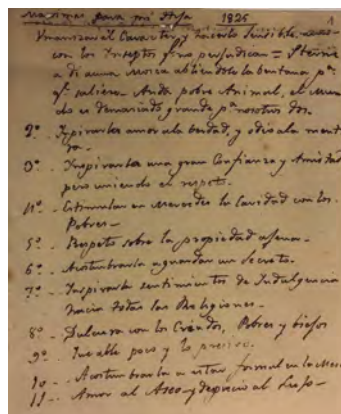 Maximas para mi Hija 1825
Humanizar el Caracter y hacerlo sensible
con los Insectos q.e no perjudican = Sterne
a di una Mosca abriendole la bentana p.a
q.e saliese Anda pobre Animal, el mun
do es demaciado grande p.a nosotros dos.
2º . Inspirarla amor a la berdad, y odio a la menti
ra.
3º . Inspirarla una gran Confianza y Amistad
pero uniendo el respeto.
4º . Estimular en Mercedes la Caridad con los
Pobres -
5º . Respeto sobre la propiedad ajena -
6º . Acostumbrarla a guardar un Secreto.
7º - Inspirarla sentimientos de Indulgencia
hacia todas las Religiones -
8º - Dulzura con los Criados, Pobres y biejos
9º - Que able poco y lo preciso.
10 - . Acostumbrarla a estar formal en la Mesa
11 - . Amor al Aseo y desprecio al Lujo -